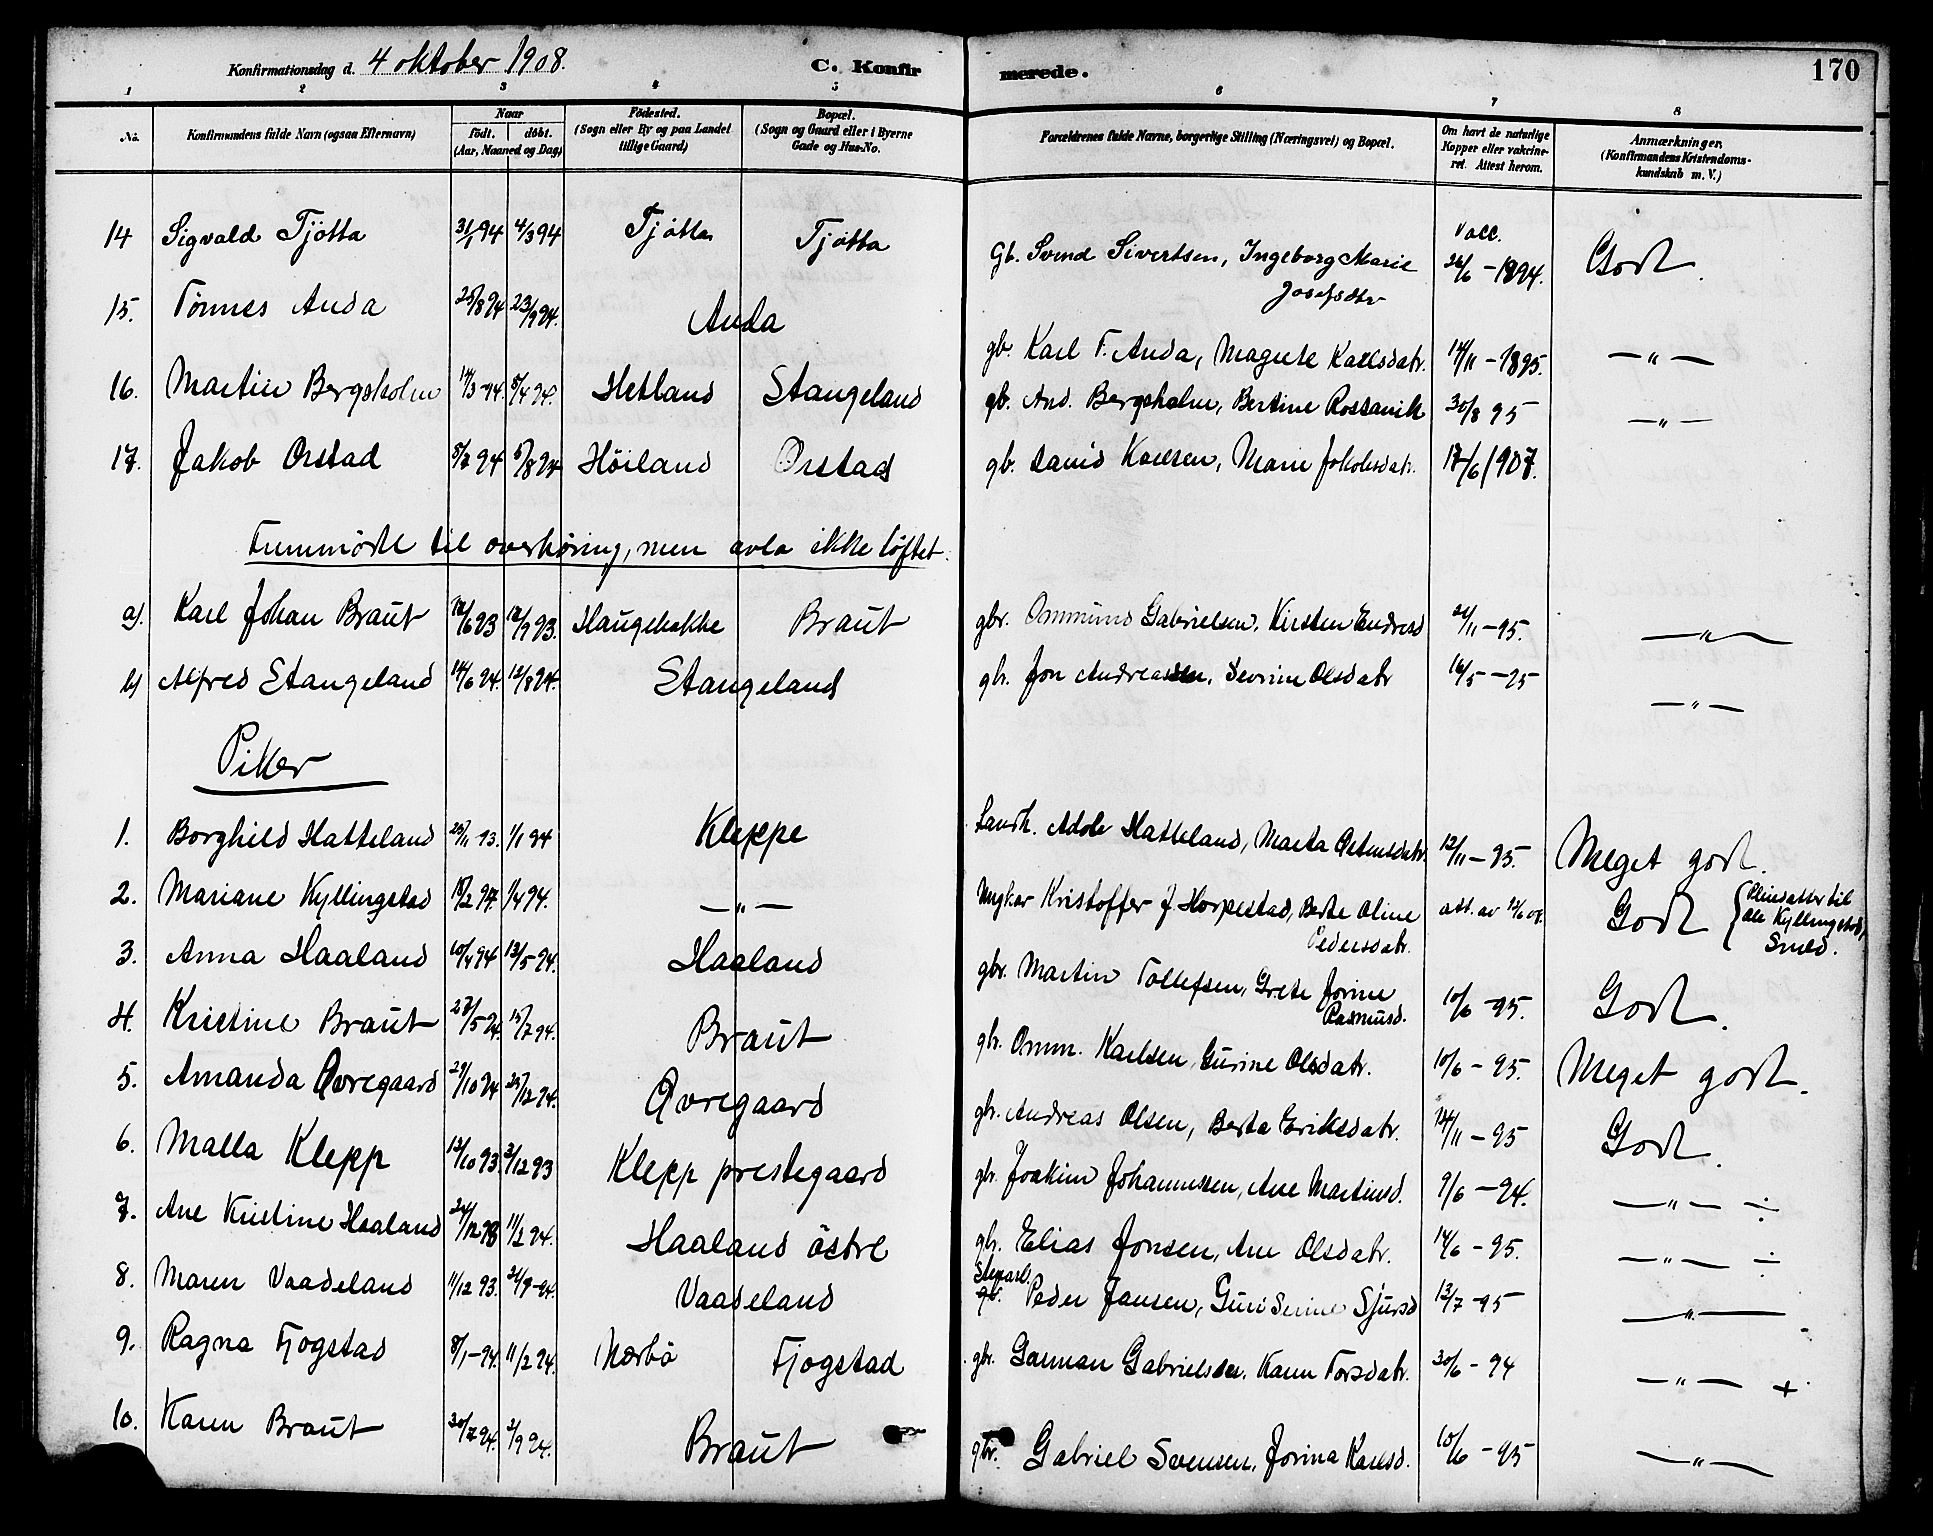 Konfirmationsdag d. 4 oktober 1908. C. Konfirmerede. 170
1 2 3 4 5 6 7 8
No. Konfirmandens fulde Navn (ogsaa Efternavn) Naar født. døbt. (Aar, Maaned og Dag) Fødested. (Sogn eller By og paa Landet tillige Gaard) Bopæl. (Sogn og Gaard eller i Byerne Gade og Hus-No. Forældrenes fulde Navne, borgerlige Stilling (Næringsvei) og Bopæl. Om havt de naturlige Kopper eller vakcineret. Attest herom. Anmærkninger. (Konfirmandens Kristendomskundskab m. V.)
14 Sigvald Tjötta 31/1 94 4/3 94 Tjötta Tjötta Gb. Svend Sivertsen, Ingeborg Marie Josefsdtr Vacc. 26/6 - 1894. Godt.
15. Tönnes Anda 25/8 94 23/9 94. Anda gb. Karl T. Anda, Magrete Karlsdatr. 14/11 - 1895. — " —
16. Martin Bergsholm 14/3 94. 8/4 94. Hetland Stangeland gb. And. Bergsholm, Bertine Rossavik 30/8 95 — " —
17. Jakob Orstad 8/7 94 5/8 94 Höiland Orstad gb. David Karlsen, Marie Jakobsdatr. 17/6 1907.
Fremmödte til overhöring, men avla ikke löftet.
a). Karl Johan Braut 12/6 93 12/7 93. Haugehakke Braut gbr. Ommund Gabrielsen, Kirsten Endresd 21/11 - 95. — " —
b) Alfred Stangeland 14/6 94. 12/8 94. Stangeland gb. Jon Andreassen, Sevrine Olsdatr 16/5 - 95 — " —
Piker
1. Borghild Hatteland 25/11 93. 1/1 94 Kleppe Landh. Adolv Hatteland, Marta Ostensdatr. 12/11 - 95. Meget godt.
2. Mariane Kyllingstad 18/2 94. 1/4 94. — " — Ungkar Kristoffer J. Horpestad, Berte Oline Pedersdatr. att. av 12/6 08. Godt { Pleiedatter til Ole Kyllingstad, Smed.
3. Anna Haaland 10/4 94 13/5 94. Haaland gbr. Martin Tollefsen, Grete Jorine Rasmusd. 10/6 - 95. Godt.
4. Kristine Braut 27/5 94. 15/7 94. Braut gb. Omm. Karlsen, Gurine Olsdatr. 10/6 - 95. Meget godt.
5. Amanda Øvregaard 29/10 94 25/12 94. Øvregaard gb. Andreas Olsen, Berta Eriksdatr. 14/11 - 95 Godt.
6. Malla Klepp 13/10 93 3/12 93 Klepp prestegaard gb. Joakim Johannessen, Ane Martinsd. 9/6 - 94. — " — ÷
7. Ane Kristine Haaland 24/12 93 11/2 94. Haaland östre gb. Elias Jonsen, Ane Olsdatr. 14/6 - 95. — " — ÷
8. Maren Vaadeland 11/12 93. Vaadeland gb. Peder Jansen, Guri Serine Sjursd 13/7 - 95 — " —
9. Ragna Fjogstad 8/1 - 94. 11/2 94. Nærbö Fjogstad gb. Garman Gabrielsen, Karen Torsdatr. 30/6 - 94 — " — +
10. Karen Braut 30/7 94. 2/9 94. Braut gbr. Gabriel Svensen, Jorina Karlsd. 10/6 - 95 — " —